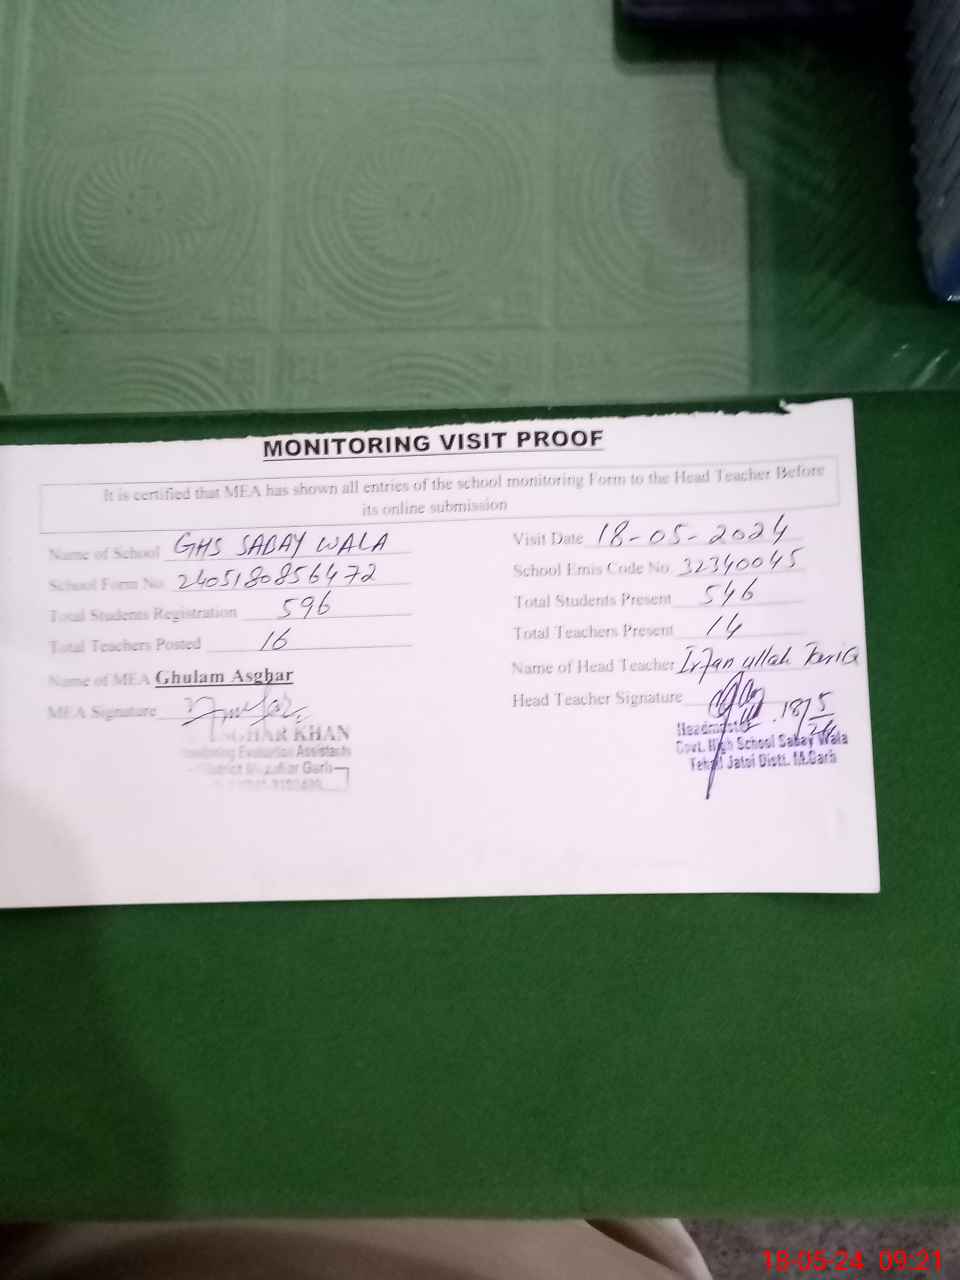 MONITORING VISIT PROOF
It is certified that MEA has shown all entries of the school monitoring Form to the Head Teacher Before
its online submission
Name of School GHS SABAY WALA
Visit Date 18-05-2024
School Form No 2405180856472
School Emis Code No 32340045
Total Students Registration 596
Total Students Present 546
Total Teachers Posted 16
Total Teachers Present 14
Name of MEA Ghulam Asghar
Name of Head Teacher Irfan ullah Tariq
MEA Signature
Head Teacher Signature
18/5/24
KHAN
Evaluation Assistants
District Garh
Headmaster
Govt. High School Sabay Wala
Tehsil Jatoi Distt. M.Garh
18-05-24 09:21